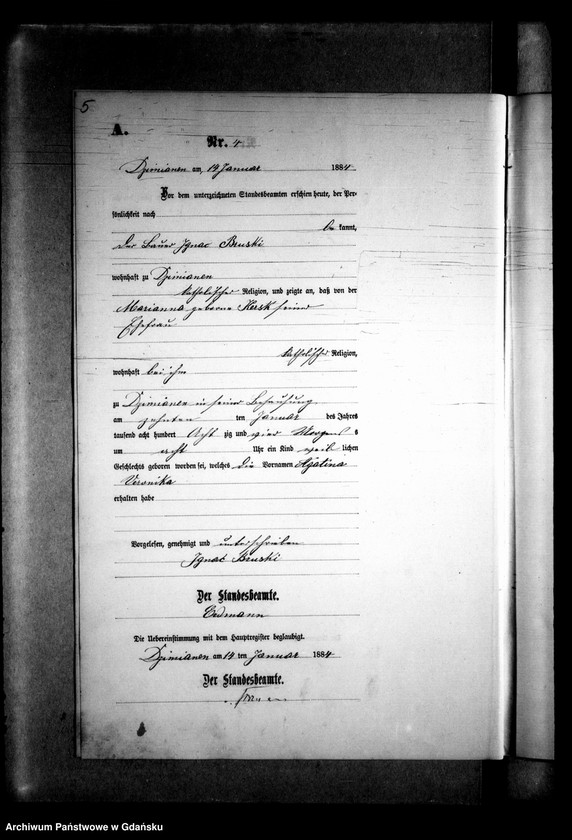 5
A.
Nr. 4
Dzimianen am 14 Januar 1884
Vor dem unterzeichneten Standesbeamten erschien heute, der Per-
sönlichkeit nach
be kannt,
der Bauer Ignac Bruski
wohnhaft zu Dzimianen
katholischer Religion, und zeigte an, daß von der
Marianna geborne Kersk seiner
Ehefrau
katholischer Religion,
wohnhaft bei ihm
zu Dzimianen in seiner Behausung
am zehnten ten Januar des Jahres
tausend acht hundert Acht zig und vier Morgens
um acht Uhr ein Kind weib lichen
Geschlechts geboren worden sei, welches die Vornamen Agatina
Veronika
erhalten habe
Vorgelesen, genehmigt und unterschrieben
Ignac Bruski
Der Standesbeamte.
Erdmann
Die Uebereinstimmung mit dem Hauptregister beglaubigt.
Dzimianen am 14 ten Januar 1884
Der Standesbeamte.
Archiwum Państwowe w Gdańsku